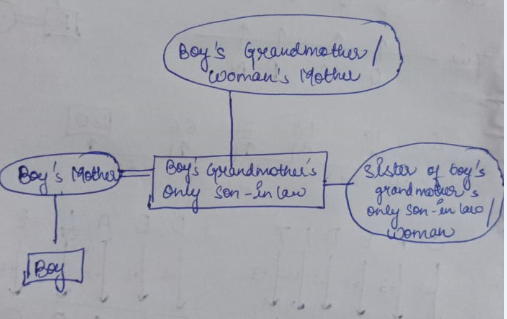 Boy's Grandmother/
Woman's Mother
Boy's Mother
Boy's Grandmother's
only son-in law
Sister of boy's
grandmother's
only son-in law/
woman
Boy